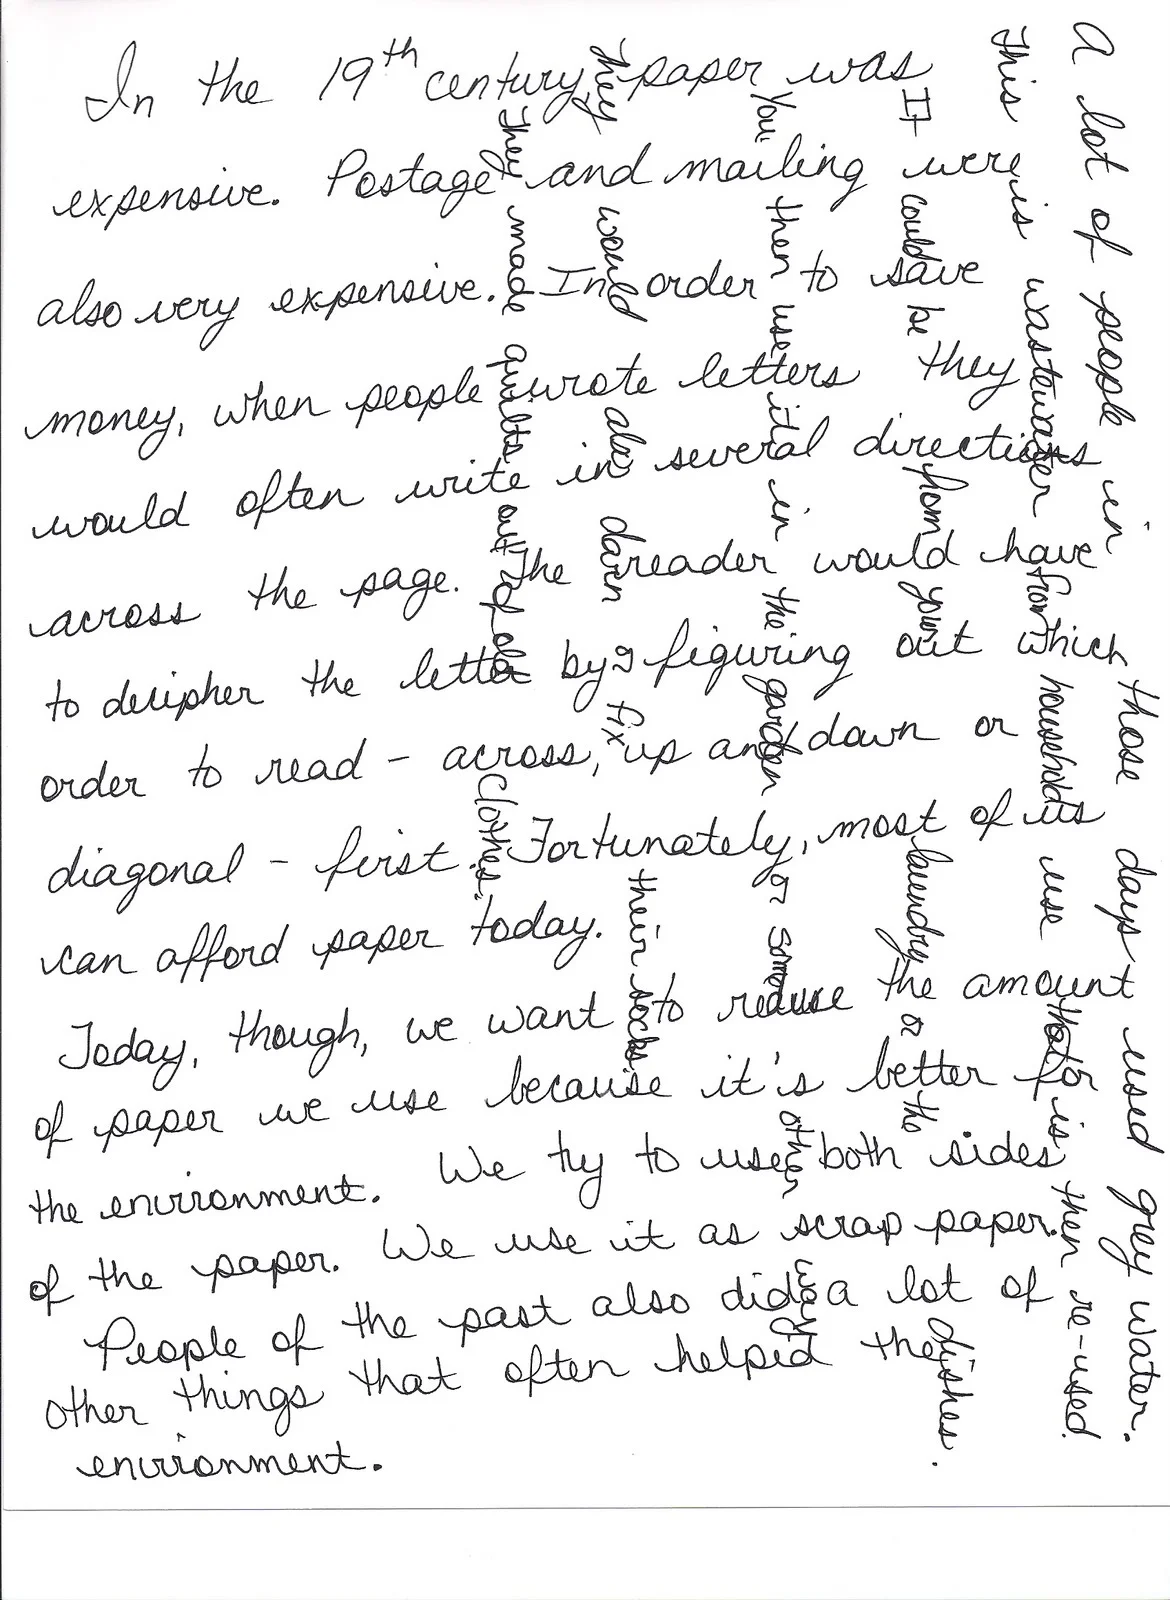 In the 19th century paper was
expensive. Postage and mailing were
also very expensive. In order to save
money, when people wrote letters they
would often write in several directions
across the page. The reader would have
to decipher the letter by figuring out which
order to read - across, up and down or
diagonal - first. Fortunately, most of us
can afford paper today.
Today, though, we want to reduce the amount
of paper we use because it's better for
the environment. We try to use both sides
of the paper. We use it as scrap paper.
People of the past also did a lot of
other things that often helped the
environment.
A lot of people in those days used grey water.
This is wastewater from households use that is then re-used.
It could be from your laundry or the dishes.
You then use it in the garden or some other way.
They would also darn or fix their socks.
They made quilts out of old clothes.